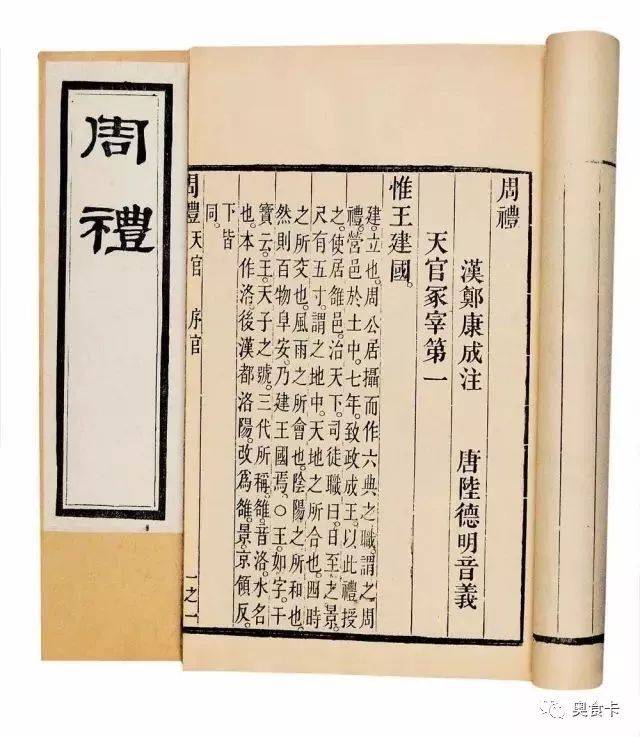 周禮
周禮
漢鄭康成注 唐陸德明音義
天官冢宰第一
惟王建國。
建。立也。周公居攝而作六典之職。謂之周
禮。營邑於土中。七年。致政成王。以此禮授
之。使居雒邑。治天下。司徒職曰。日至之景。
尺有五寸。謂之地中。天地之所合也。四時
之所交也。風雨之所會也。陰陽之所和也。
然則百物阜安。乃建王國焉。○王。如字。干
寶云。王。天子之號。三代所稱。雒。音洛。水名
也。本作洛。後漢都洛陽。改爲雒。景。京領反。
下皆
同。
周禮 天官 序官 一之一
奥食卡